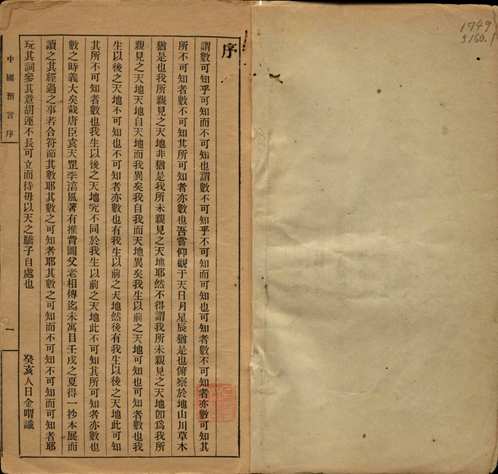 1749
5160.1
序
謂數可知乎可知而不可知也謂數不可知乎不可知而可知也可知者數不可知者亦數也可知其
所不可知者數不可知其所可知者亦數也吾嘗仰觀于天日月星辰猶是也俯察於地山川草木
猶是也我所親見之天地非猶是我所未親見之天地耶然不得謂我所未親見之天地卽爲我所
親見之天地天地自天地而我異矣我自我而天地異矣我生以前之天地可知也可知者數也我
生以後之天地不可知也不可知者亦數也有我生以前之天地然後有我生以後之天地此可知
其所不可知者數也我生以後之天地究不同於我生以前之天地此不可知其所可知者亦數也
數之時義大矣哉唐臣袁天罡李淳風著有推背圖父老相傳迄未寓目壬戌之夏得一抄本展而
讀之其經過之事若合符節其數耶其數之可知者耶其數之可知而不可知不可知而可知者耶
玩其詞參其意胡運不長可立而待毋以天之驕子自處也
癸亥人日金喟識
中國預言序
一